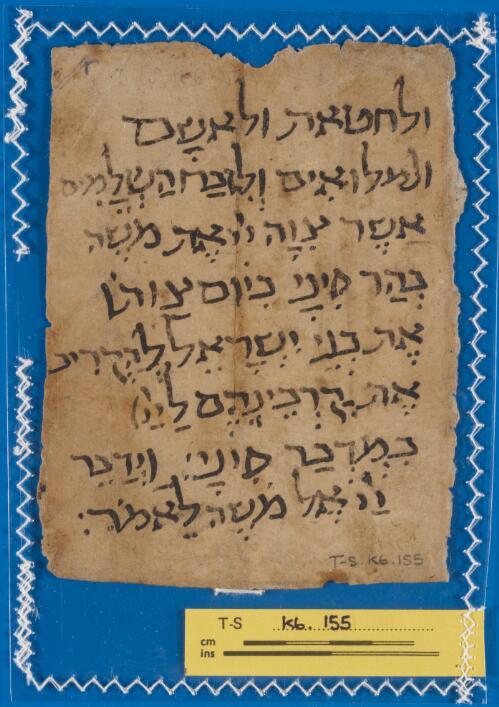 ולחטאת ולאשָם
ולמלואִים וְלִזבַח הַשְלָמִים
אֲשֶר צִוָה יי אֶת משֶה
בְהַר סִינָי ביום צַותו
אֶת בְנֵי יִשְרָאֵל לְהַקְרִיב
אֶת קָרְבֵינֵהֶם לַייי
בְמִדְבַר סִינָי׃ וַיְדַבֵר
יי אֶל משֶה לֵאמֹר׃
T-S.K6.155
T-S K6. 155
cm
ins